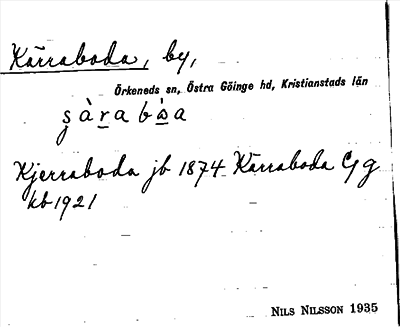 Kärraboda, by,
Örkeneds sn, Östra Göinge hd, Kristianstads län
Kjerraboda jb 1874 Kärraboda
kb 1921
NILS NILSSON 1935